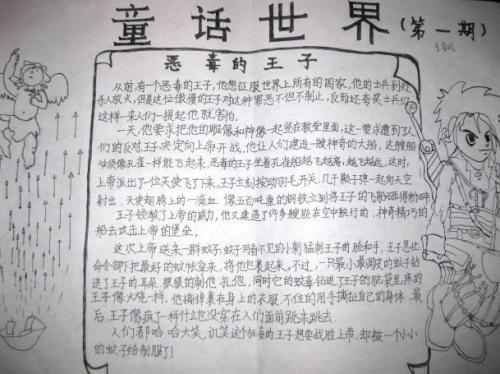 童话世界(第一期)
恶毒的王子
从前,有一个恶毒的王子,他想征服世界上所有的国家,他的士兵到处
杀人放火,但是这位傲慢的王子对这种罪恶不但不制止,反而还夸奖士兵们
这样一来人们一提起他就害怕。
一天,他要求把他的雕像和神像一起竖在教堂里面,这一要求遭到了人
们的反对,王子决定向上帝开战,他让人们建造一艘神奇的大船,这艘船
像孔雀一样能飞起来,恶毒的王子坐着孔雀船越飞越高,越飞越远,这时,
上帝派出了一位天使飞了下来,王子立刻按动羽毛开关,几千颗子弹一起向天空
射出,天使翅膀上的一滴血 像五百吨重的钢铁立刻将王子的飞船砸得粉碎
王子领教了上帝的威力,他又建造了许多艘能在空中航行的,神奇精巧的
船去攻击上帝的堡垒。
这次上帝送来一群蚊子,蚊子用看不见的小刺猛刺王子的脸和手,王子急忙
命令部下把最好的蚊帐拿来,将他包裹起来。不过,一只最小最调皮的蚊子钻
进了王子的耳朵,狠狠的刺他,扎他,同时它的蚊毒钻进了王子的脑袋里,疼的
王子像火烧一样,他撕掉裹在身上的衣服,不住的用手撕扯自己的身体,最
后,王子像疯了一样什么也没穿在人们面前跳来跳去
人们都哈哈大笑,讥笑这个狂妄的王子想要战胜上帝,却被一个小小
的蚊子给制服了!